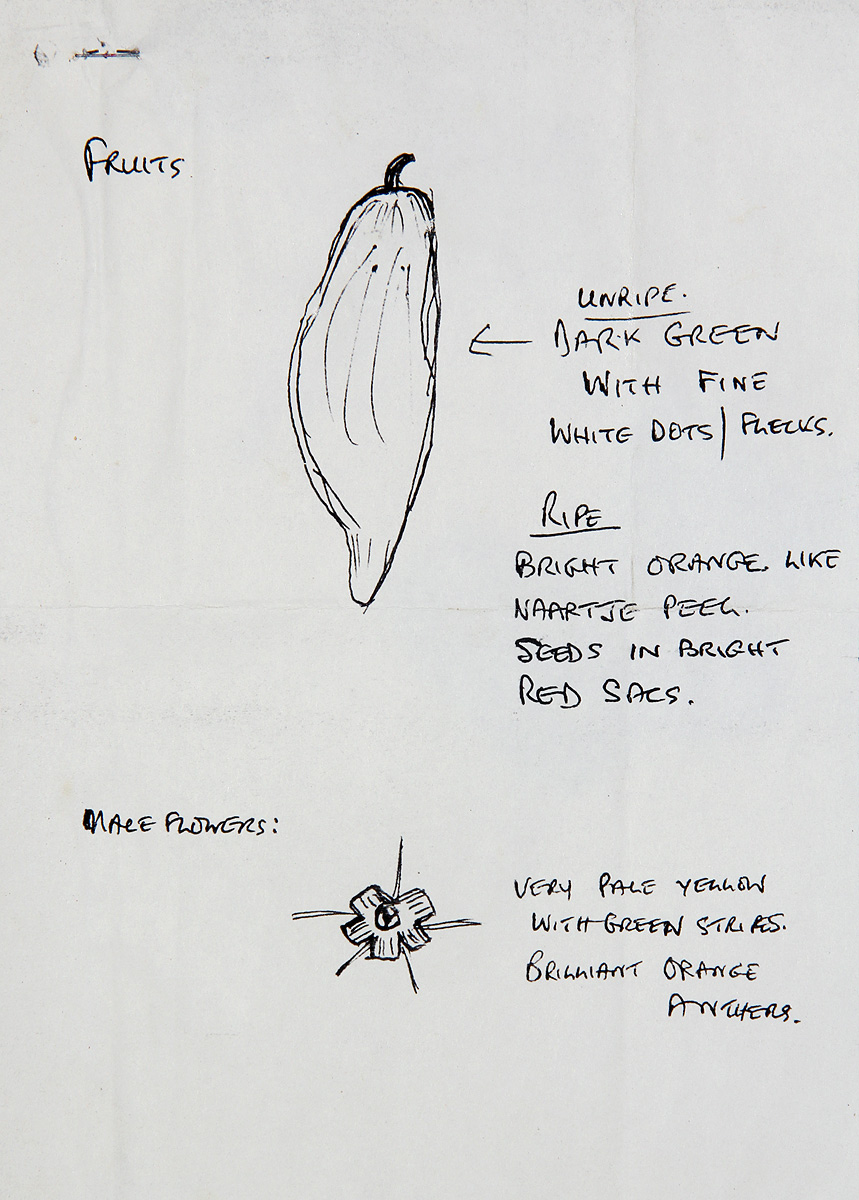 FRUITS
UNRIPE.
DARK GREEN
WITH FINE
WHITE DOTS/FLECKS.
RIPE
BRIGHT ORANGE. LIKE
NAARTJE PEEL.
SEEDS IN BRIGHT
RED SACS.
MALE FLOWERS:
VERY PALE YELLOW
WITH GREEN STRIPES.
BRILLIANT ORANGE
ANTHERS.